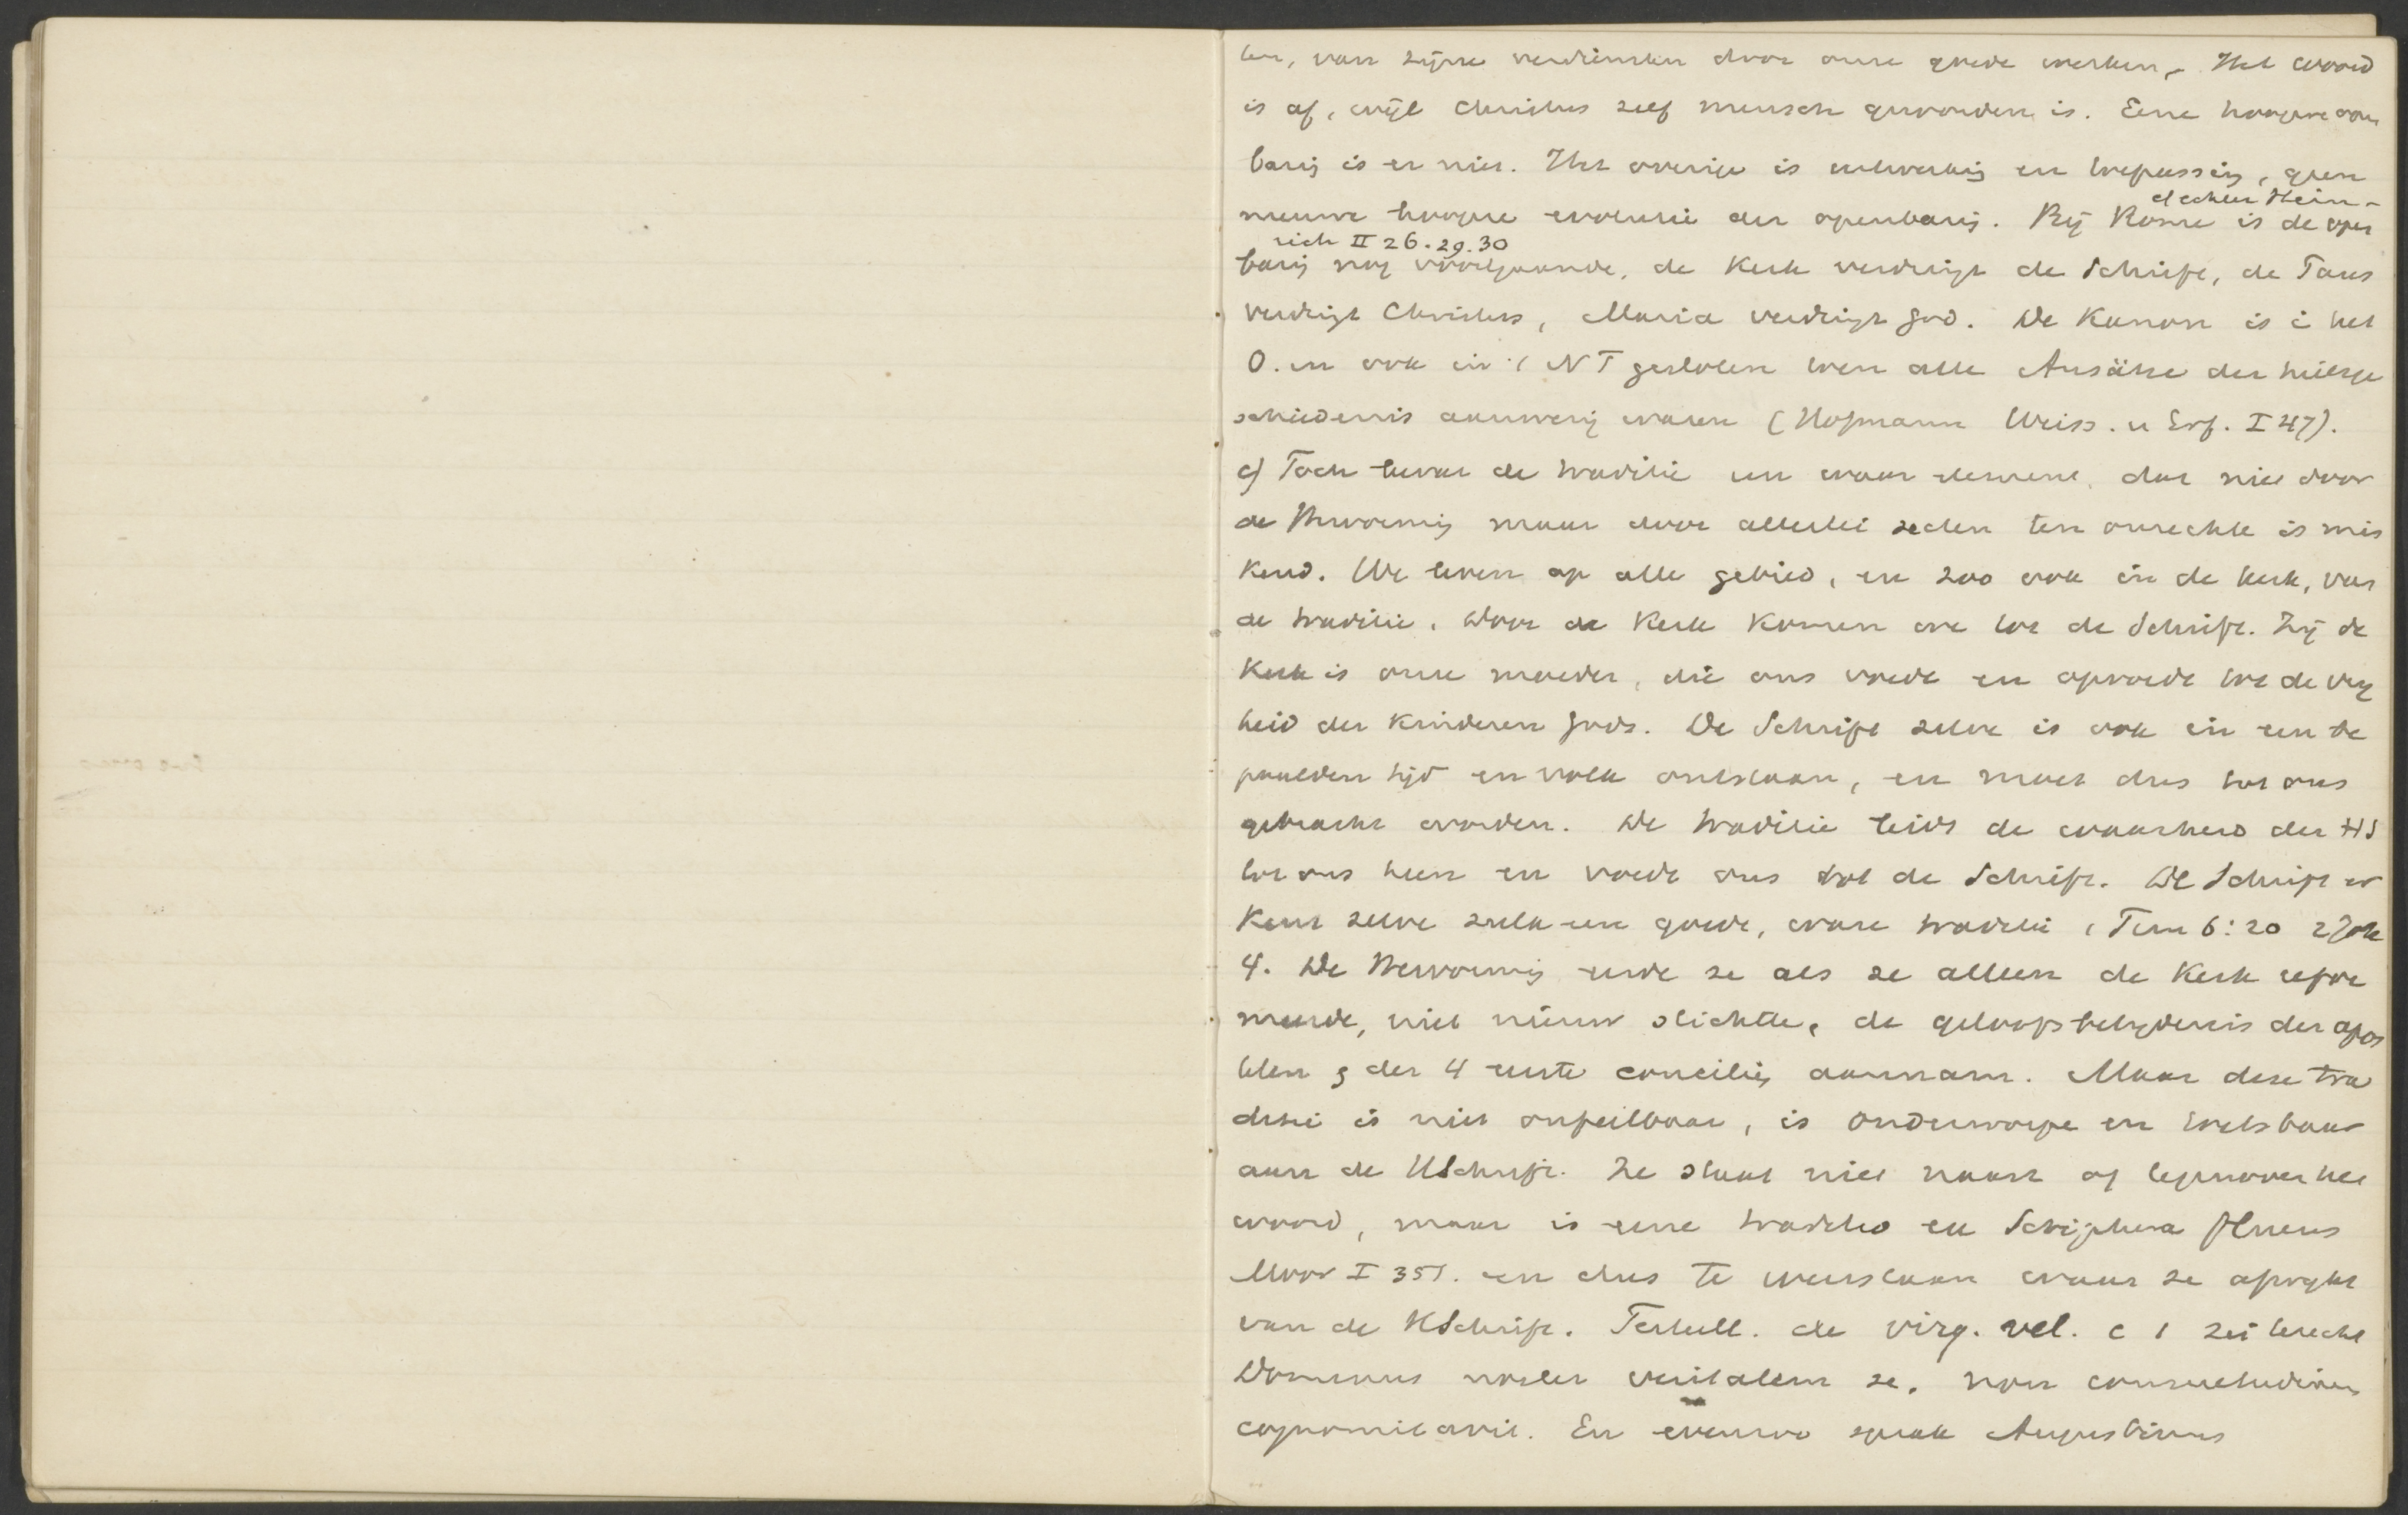 len, van zijne verdiensten door onze goede werken, Het woord
is af, wijl Christus zelf mensch geworden is. Eene hoogere open
baring is er niet. Het overige is uitwerking en toepassing, geen
nieuwe hoogere evolutie der openbaring. Bij Rome is de open
cf echter Hein-
rich II 26.29.30
baring nog voortgaande, de Kerk verdringt de Schrift, de Paus
verdringt Christus, Maria verdringt God. De Kanon is i het
O. en ook in 't NT gesloten toen alle Ansätze der heilsge
schiedenis aanwezig waren (Hofmann Weiss. u Erf. I 47).
c) Toch bevat de traditie een waar element, dat niet door
de Hervorming maar door allerlei secten ten onrechte is mis
kend. We leven op alle gebied, en zoo ook in de kerk, van
de traditie. Door de Kerk komen we tot de Schrift. Zij de
Kerk is onze moeder, die ons voedt en opvoedt tot de vrij
heid der kinderen Gods. De Schrift zelve is ook in een be
paalden tijd en volk ontstaan, en moet dus tot ons
gebracht worden. De traditie leidt de waarheid der HS
tot ons heen en voedt ons tot de Schrift. De Schrift er
kent zelve zulk een goede, ware traditie 1 Tim 6:20 2 Joh
4. De Hervorming eerde ze als ze alleen de Kerk refor
meerde, niet nieuw stichtte, de geloofsbelijdenis der apos
telen & der 4 eerste conciliën aannam. Maar deze tra
ditie is niet onfeilbaar, is onderworpe en toetsbaar
aan de HSchrift. Ze staat niet naast of tegenover het
woord, maar is eene traditio ex Scriptura fluens
Moor I 351. en dus te weerstaan waar ze afwijkt
van de HSchrift. Tertull. de virg. vel. c 1 zei terecht
Dominus noster veritatem se, non consuetudinem
cognominavit. En evenzoo sprak Augustinus